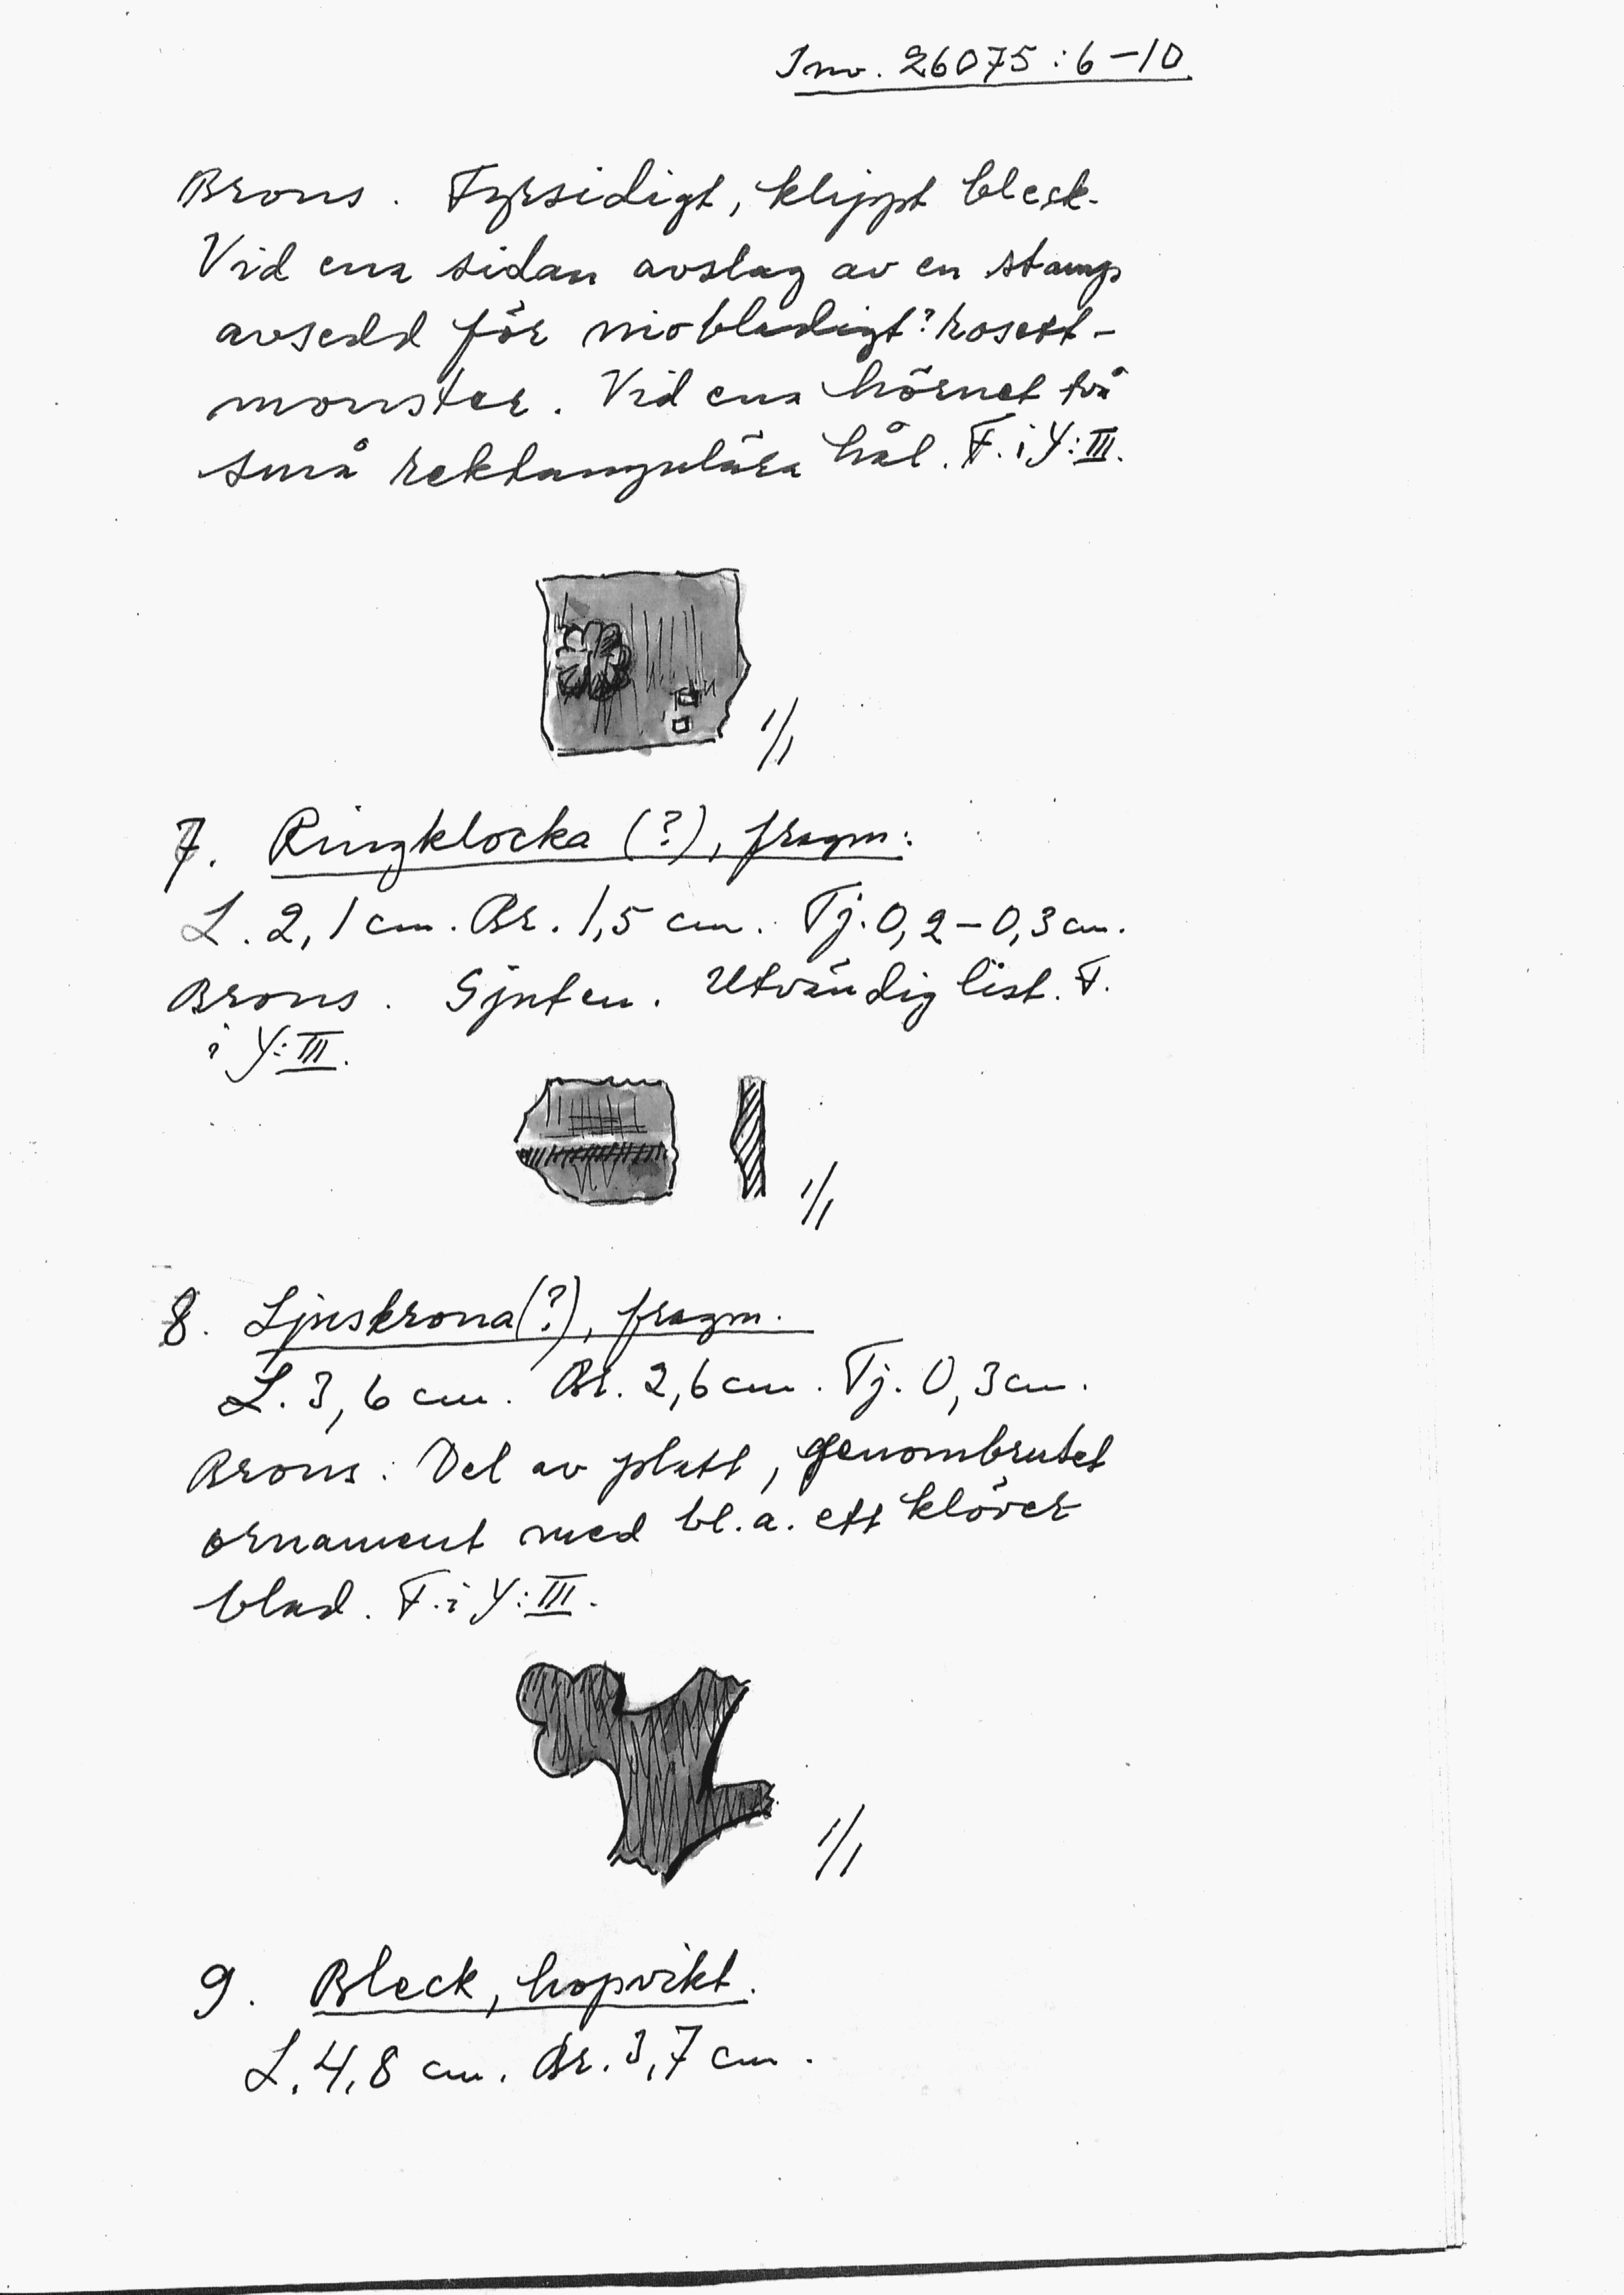 Inv. 26075:6-10.
Brons. Fyrsidigt, klippt bleck.
Vid ena sidan avslag av en stamp
avsedd för niobladigt? rosett-
monster. Vid ena hörnet två
små rektangulära hål. F. i Y:III.
1/1
7. Ringklocka (?), fragm:
L. 2,1 cm. Br. 1,5 cm. Tj. 0,2-0,3 cm.
Brons. Gjuten. Utvändig list. F.
i Y:III.
1/1
8. Ljuskrona (?), fragm.
L. 3,6 cm. Br. 2,6 cm. Tj. 0,3 cm.
Brons: Del av platt, genombrutet
ornament med bl.a. ett klöver
blad. F. i Y:III.
1/1
9. Bleck, hopvikt.
L. 4,8 cm. Br. 3,7 cm.